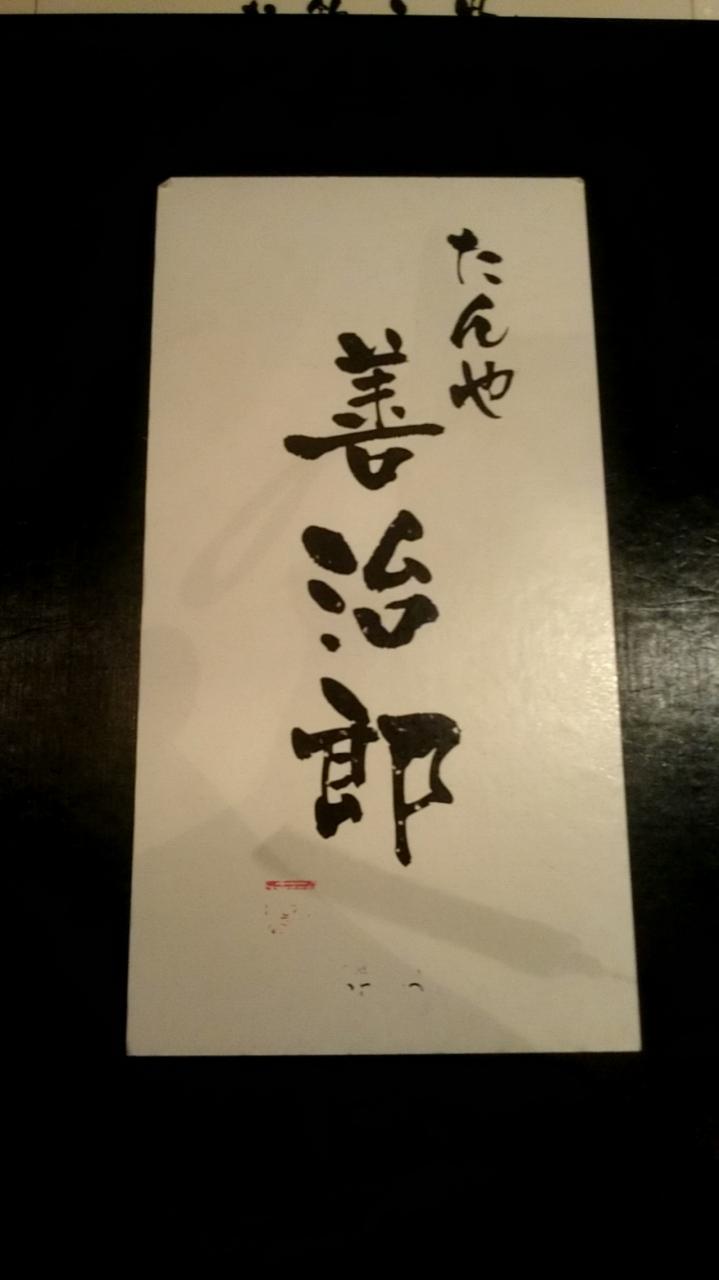 たんや
善治郎